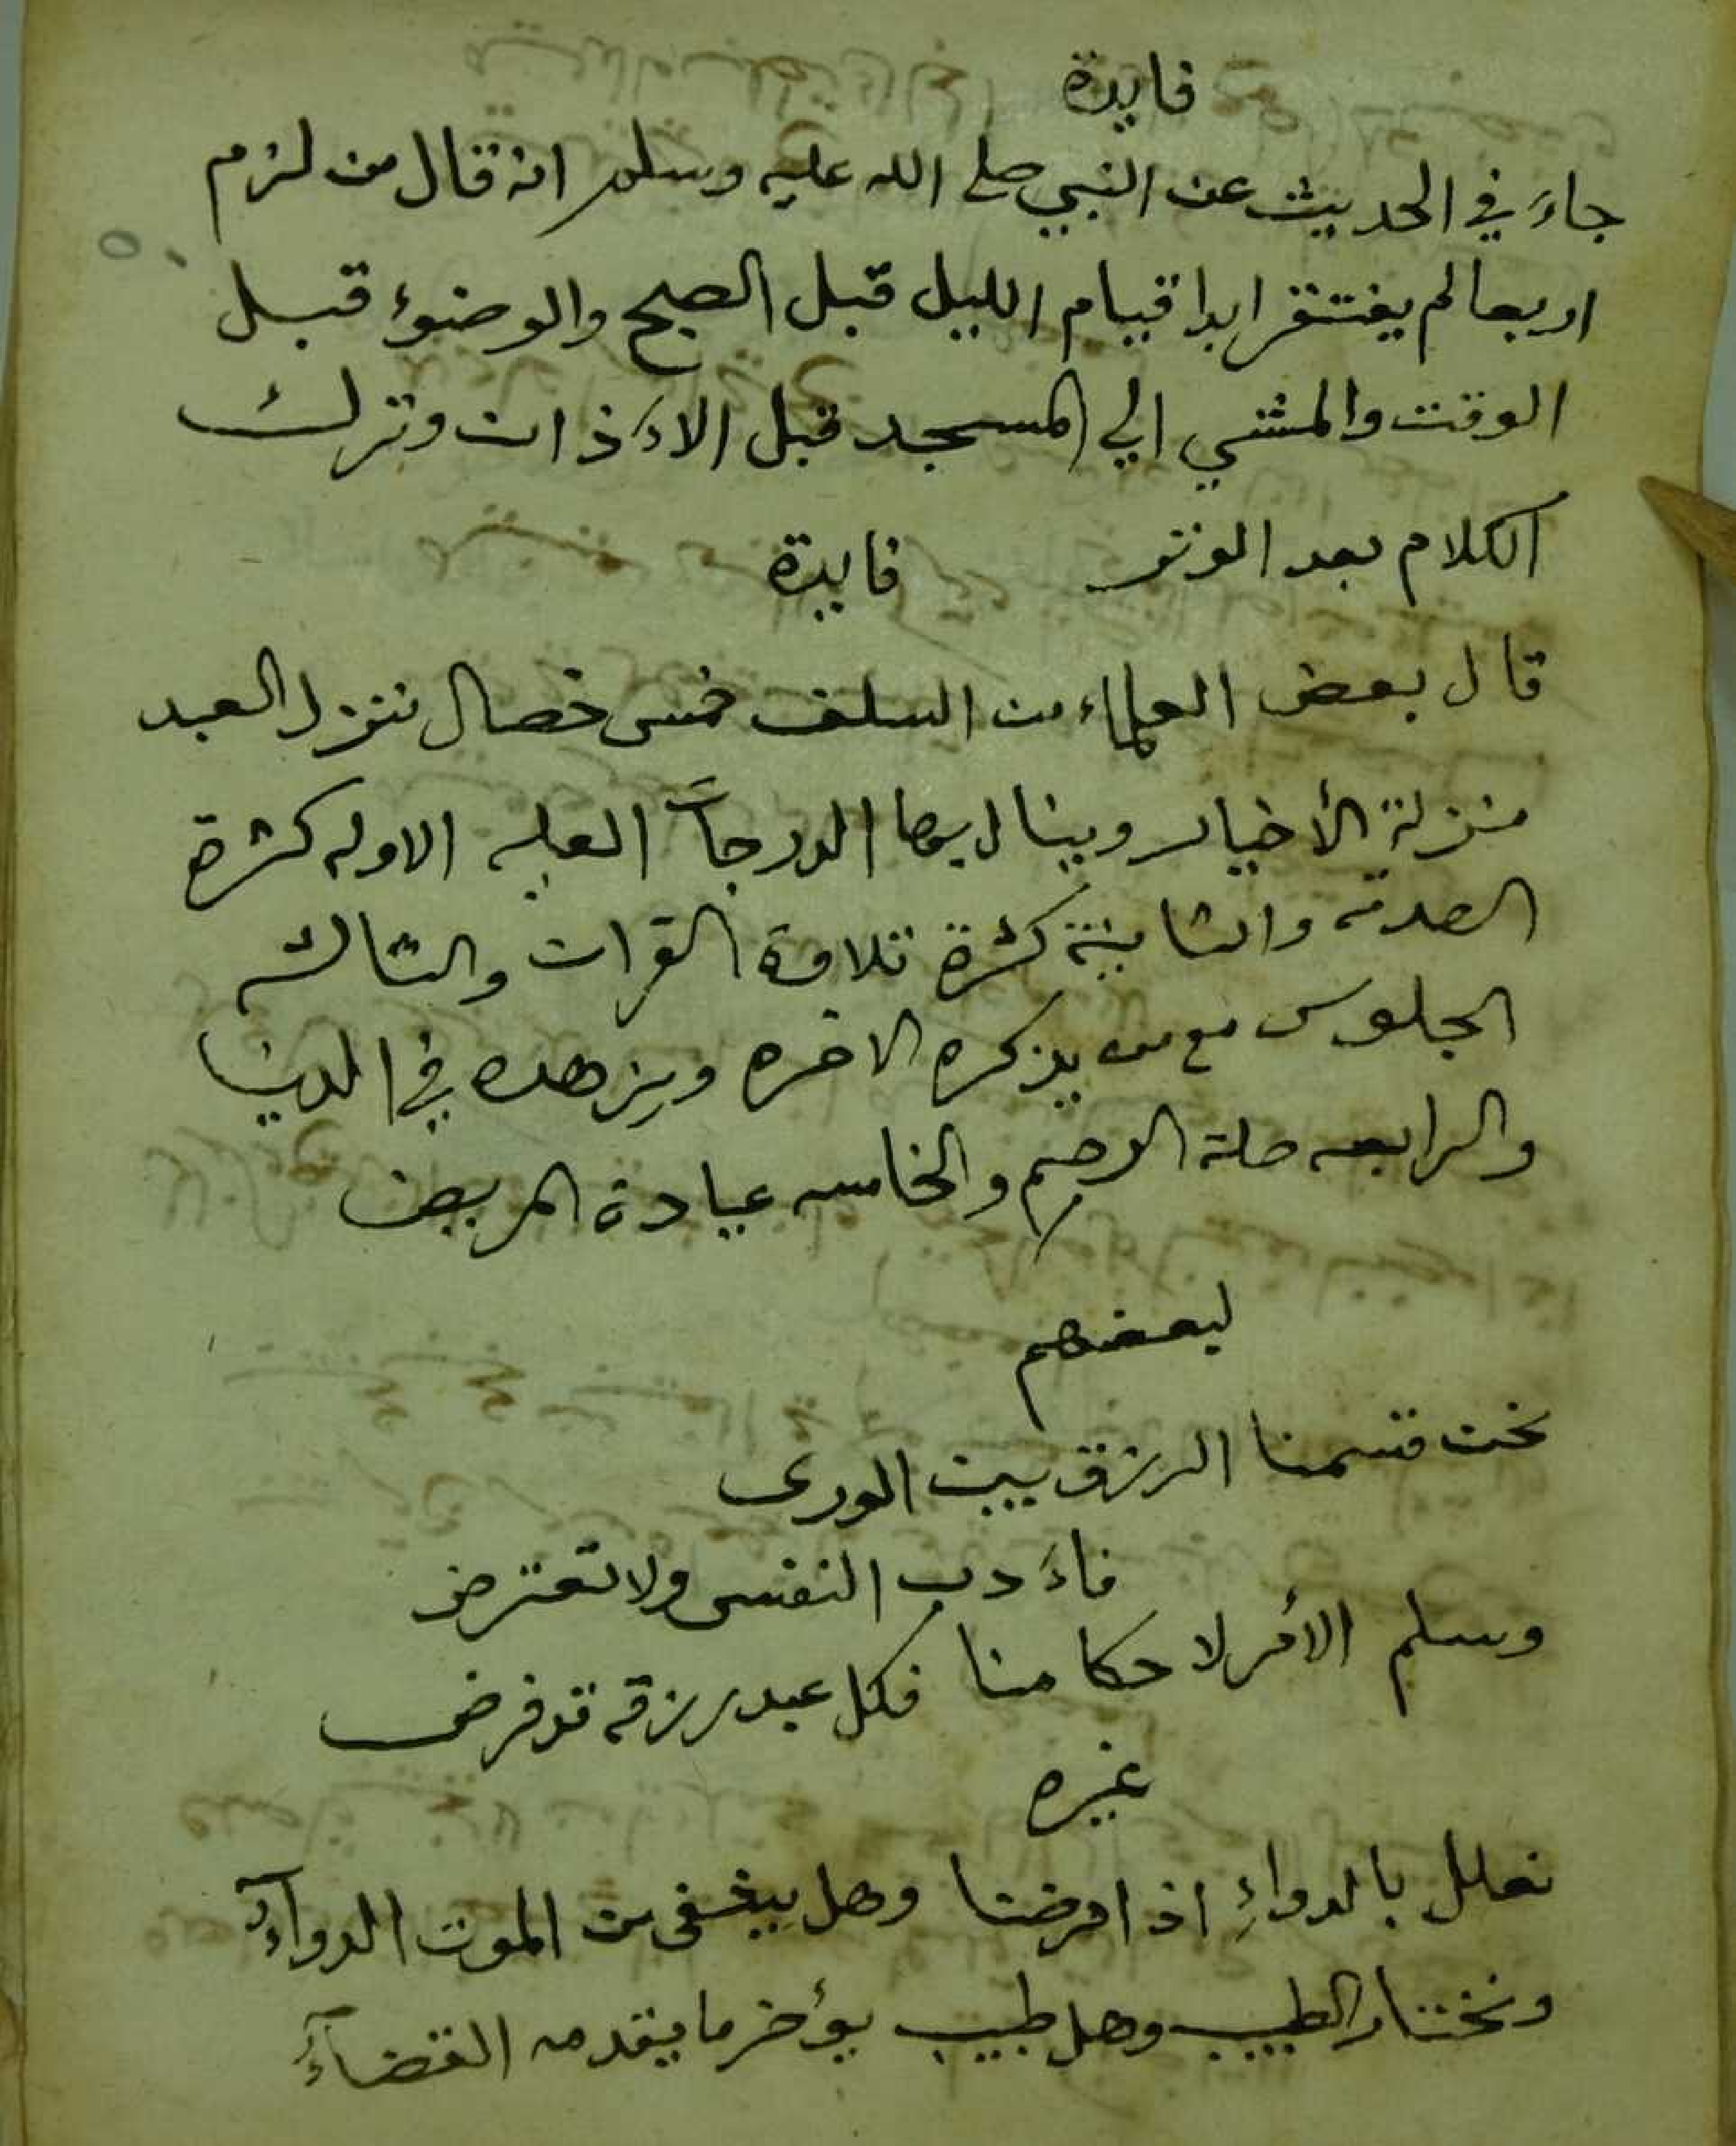 فايدة
جاء في الحديث عن النبي صلى الله عليه وسلم انه قال من لزم
اربعا لم يفتقر ابدا قيام الليل قبل الصبح والوضوء قبل
الوقت والمشي الي المسجد قبل الاءذان وترك
الكلام بعد الوتر فايدة
قال بعض العلماء من السلف خمس خصال تنزل العبد
منزلة الأخيار وينال بها الدرجات العليه الاوله كثرة
الصدقه والثانية كثرة تلاوة القران والثالثه
الجلوس مع من يذكره الاخره ويزهده في الدنيا
والرابعه صلة الرحم والخامسه عيادة المريض
لبعضهم
نحن قسمنا الرزق بين الورى
فاءدب النفس ولا تعترض
وسلم الأمر لاحكامنا فكل عبد رزقه قد فرض
غيره
نعلل بالدواءِ اذا مرضنا وهل يشفى من الموت الدوآء
ونختار الطبيب وهل طبيب يؤخر ما يقدمه القضآء